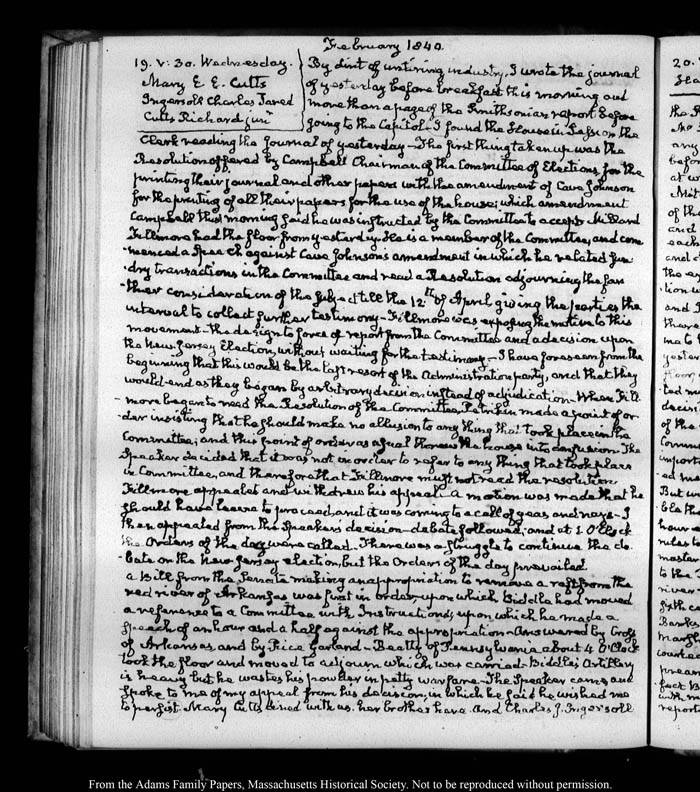 February 1840.
19. V: 30. Wednesday.
Mary E. E. Cutts
Ingersoll Charles Jared
Cutts Richard junr
By dint of untiring industry, I wrote the journal
of yesterday before breakfast this morning and
more than a page of the Smithsonian report before
going to the Capitol - I found the House in Session the
Clerk reading the Journal of yesterday - The first thing taken up was the
Resolution offered by Campbell Chairman of the Committee of Elections, for the
printing their journal and other papers with the amendment of Cave Johnson
for the printing of all their papers for the use of the house; which amendment
Campbell this morning said he was instructed by the Committee to accept. Millard
Fillmore had the floor from yesterday. He is a member of the Committee, and com
menced a Speech against Cave Johnson's amendment in which he related sun
dry transactions in the Committee and read a Resolution adjourning the far
ther consideration of the subject till the 12th of April giving the parties the
interval to collect further testimony - Fillmore was exposing the motive to this
movement - the design to force a report from the Committee and a decision upon
the New-Jersey Election, without waiting for the testimony - I have foreseen from the
beginning that this would be the last resort of the Administration party, and that they
would end as they began by arbitrary decision instead of adjudication - When Fill
more began to read the Resolution of the Committee Petrikin made a point of or
der insisting that he should make no allusion to any thing that took place in the
Committee; and this point of order as usual threw the house into confusion. The
Speaker decided that it was not in order to refer to any thing that took place
in Committee, and therefore that Fillmore must not read the resolution
Fillmore appealed and withdrew his appeal. A motion was made that he
should have leave to proceed, and it was coming to a call of yeas and nays - I
then appealed from the Speaker's decision - debate followed; and at 1. O'Clock
the Orders of the day were called - There was a struggle to continue the de
bate on the New-Jersey election, but the Orders of the day prevailed
a Bill from the Senate making an appropriation to remove a raft from the
red river of Arkansas was first in order, upon which Biddle had moved
a reference to a Committee with Instructions, upon which he made a
Speech of an hour and a half against the appropriation - Answered by Cross
of Arkansas, and by Rice Garland - Beatty of Pennsylvania about 4 O'Clock
took the floor and moved to adjourn which was carried. Biddle's artillery
is heavy but he wastes his powder in petty warfare - The Speaker came and
spoke to me of my appeal from his decision; in which he said he wished me
to persist. Mary Cutts dined with us. her brother here. and Charles J. Ingersoll
20.
From the Adams Family Papers, Massachusetts Historical Society. Not to be reproduced without permission.